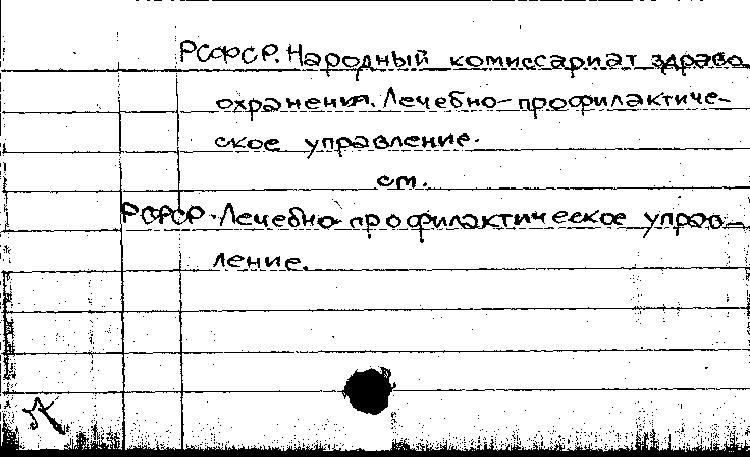 РСФСР. Народный комиссариат здраво
охранения. Лечебно-профилактиче-
ское управление.
см.
РСФСР. Лечебно-профилактическое управ-
ление.